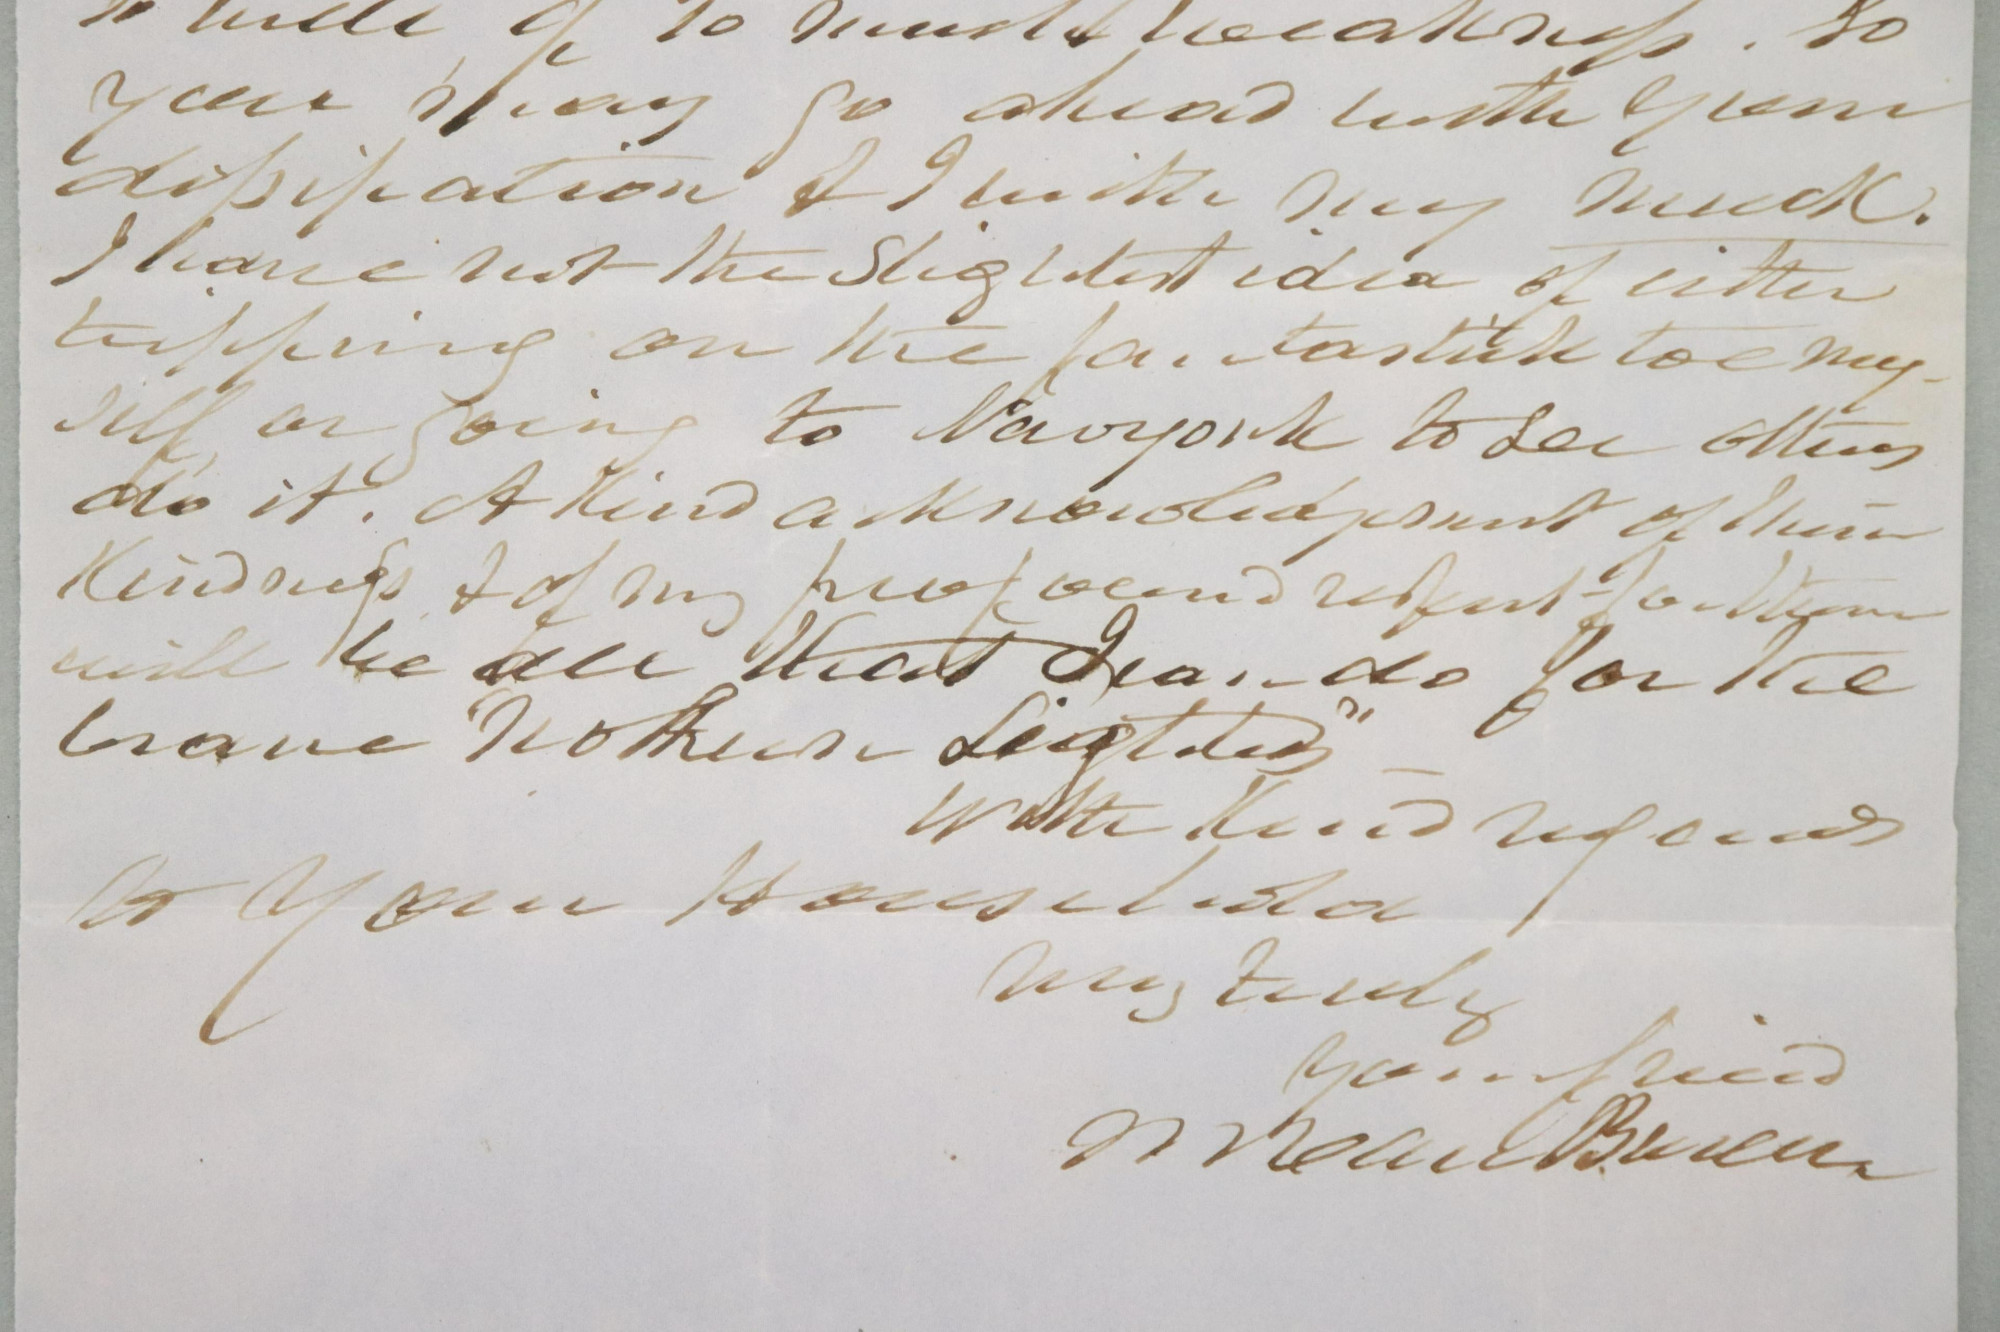 to well of to much weakness. So
you may go ahead with your
dissipation & I with my muck.
I have not the slightest idea of either
tripping on the fantastick toe my-
self or going to Newyork to see others
do it. A kind acknowledgment of their
kindness & of my profound respect for them
will be all that I can do for the
brave "Nothern Lights"
With kind regards
to your Household
very truly
your friend
M Van Buren